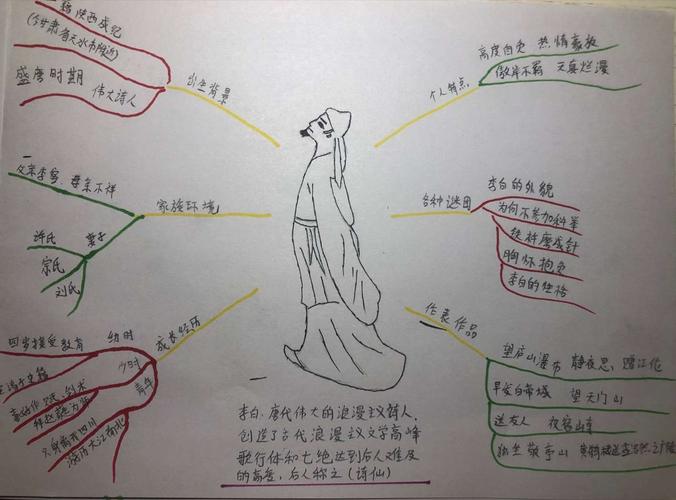 籍陕西成纪
(今甘肃省天水市附近)
盛唐时期
伟大诗人
出生背景
高度自负 热情豪放
傲岸不羁 天真烂漫
个人特点
父亲李客, 母亲不详
家族环境
妻子
许氏
宗氏
刘氏
各种谜团
李白的外貌
为何不参加科举
铁杵磨成针
胸怀抱负
李白的性格
成长经历
幼时
四岁接受教育
少时
青年
只身离开四川
代表作品
望庐山瀑布 静夜思,
早发白帝城 望天门山
送友人 夜宿山寺
独坐敬亭山
李白: 唐代伟大的浪漫主义诗人,
创造了古代浪漫主义文学高峰
歌行体和七绝达到后人难及
的高度, 后人称之 (诗仙)